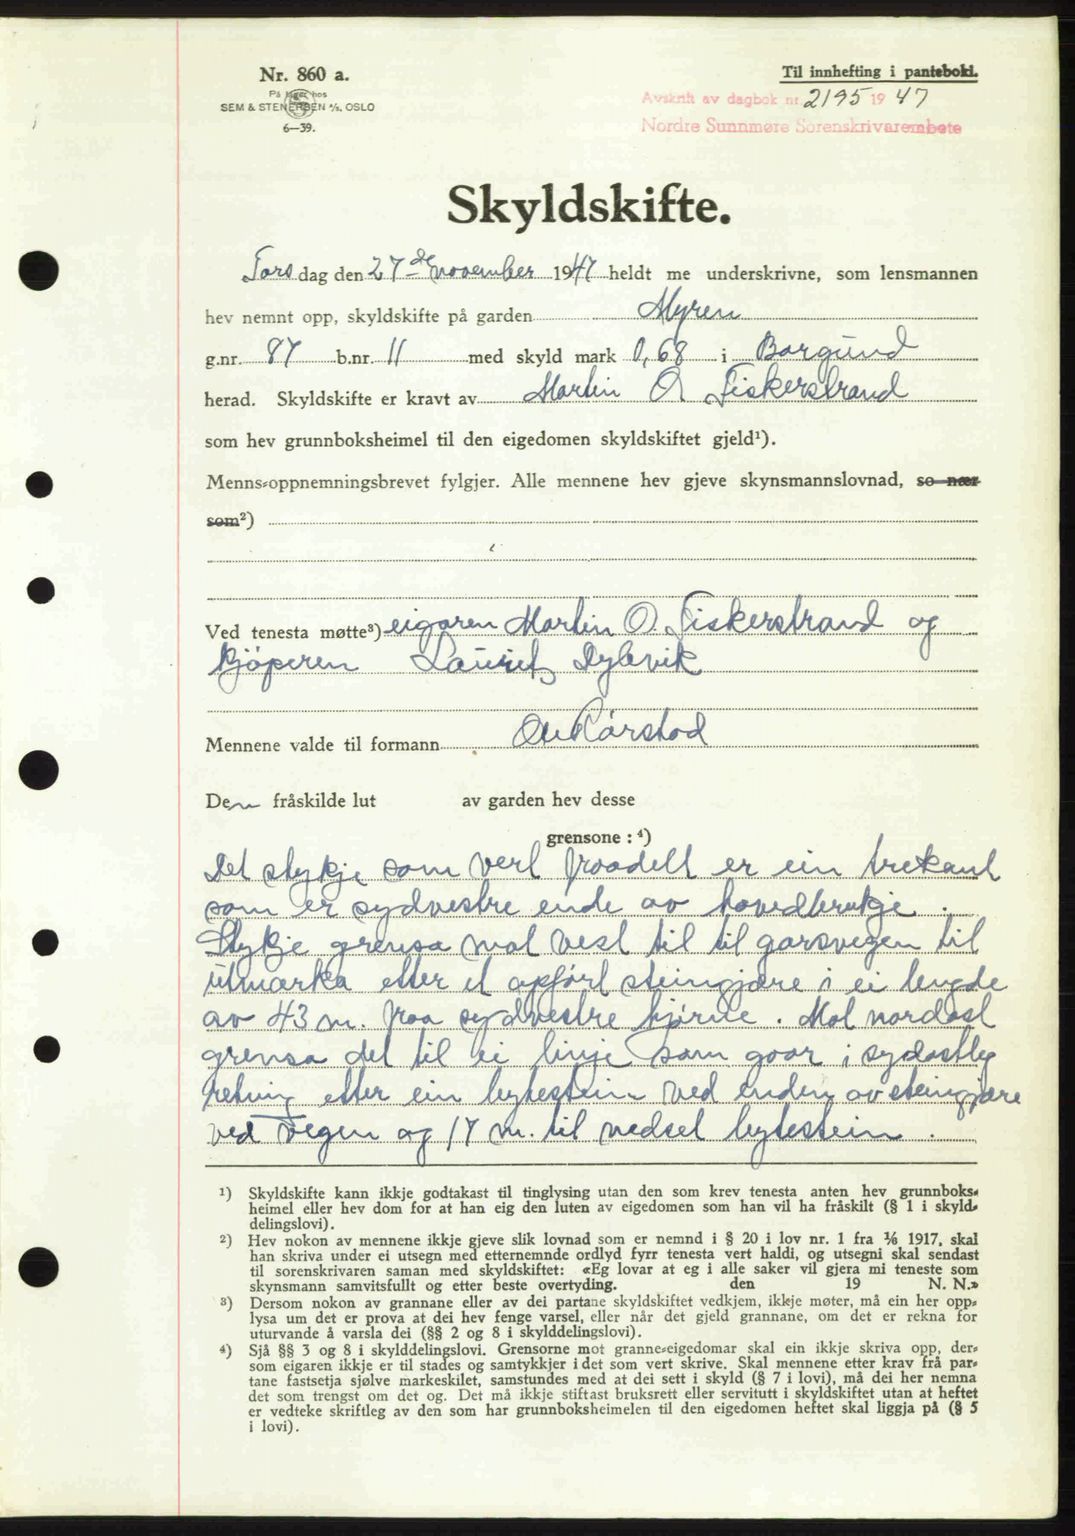 Nr. 860 a.
På lager hos
SEM & STENERSEN A/S, OSLO
6—39.
Til innhefting i pantebok.
Avskrift av dagbok nr. 2195 19 47
Nordre Sunnmøre Sorenskrivarembete
Skyldskifte.
Tors dag den 27de november 1947 heldt me underskrivne, som lensmannen
hev nemnt opp, skyldskifte på garden Myren
g.nr. 87 b.nr. 11 med skyld mark 0,68 i Borgund
herad. Skyldskifte er kravt av Martin O Fiskerstrand
som hev grunnboksheimel til den eigedomen skyldskiftet gjeld¹).
Menns-oppnemningsbrevet fylgjer. Alle mennene hev gjeve skynsmannslovnad, so nær
som²)
Ved tenesta møtte³) eigaren Martin O. Fiskerstrand og
kjöperen Laurits Dylevik
Mennene valde til formann Ole Kårstad
Den fråskilde lut av garden hev desse
grensone : ⁴)
Det stykje som vert fraadelt er ein trekant
som er sydvestre ende av hovedbrukje .
Stykje grensa mot vest til til garsvegen til
utmarka etter et opført steingjære i ei lengde
av 43 m. fraa sydvestre hjørne . Mot nordost
grensa det til ei linje som gaar i sydostleg
retning etter ein bytestein ved enden av steingjære
ved vegen og 17 m. til nedset bytestein .
¹) Skyldskifte kann ikkje godtakast til tinglysing utan den som krev tenesta anten hev grunnboks-
heimel eller hev dom for at han eig den luten av eigedomen som han vil ha fråskilt (§ 1 i skyld-
delingslovi).
²) Hev nokon av mennene ikkje gjeve slik lovnad som er nemnd i § 20 i lov nr. 1 fra 1/6 1917, skal
han skriva under ei utsegn med etternemnde ordlyd fyrr tenesta vert haldi, og utsegni skal sendast
til sorenskrivaren saman med skyldskiftet: «Eg lovar at eg i alle saker vil gjera mi teneste som
skynsmann samvitsfullt og etter beste overtyding. den 19 N. N.»
³) Dersom nokon av grannane eller av dei partane skyldskiftet vedkjem, ikkje møter, må ein her opp-
lysa um det er prova at dei hev fenge varsel, eller når det gjeld grannane, om det er rekna for
uturvande å varsla dei (§§ 2 og 8 i skylddelingslovi).
⁴) Sjå §§ 3 og 8 i skylddelingslovi. Grensorne mot granne-eigedomar skal ein ikkje skriva opp, der-
som eigaren ikkje er til stades og samtykkjer i det som vert skrive. Skal mennene etter krav frå par-
tane fastsetja sjølve markeskilet, samstundes med at dei sett i skyld (§ 7 i lovi), må dei her nemna
det som trengst om det og. Det må ikkje stiftast bruksrett eller servitutt i skyldskiftet utan at heftet
er vedteke skriftleg av den som har grunnboksheimelen til den eigedomen heftet skal liggja på (§ 5
i lovi).